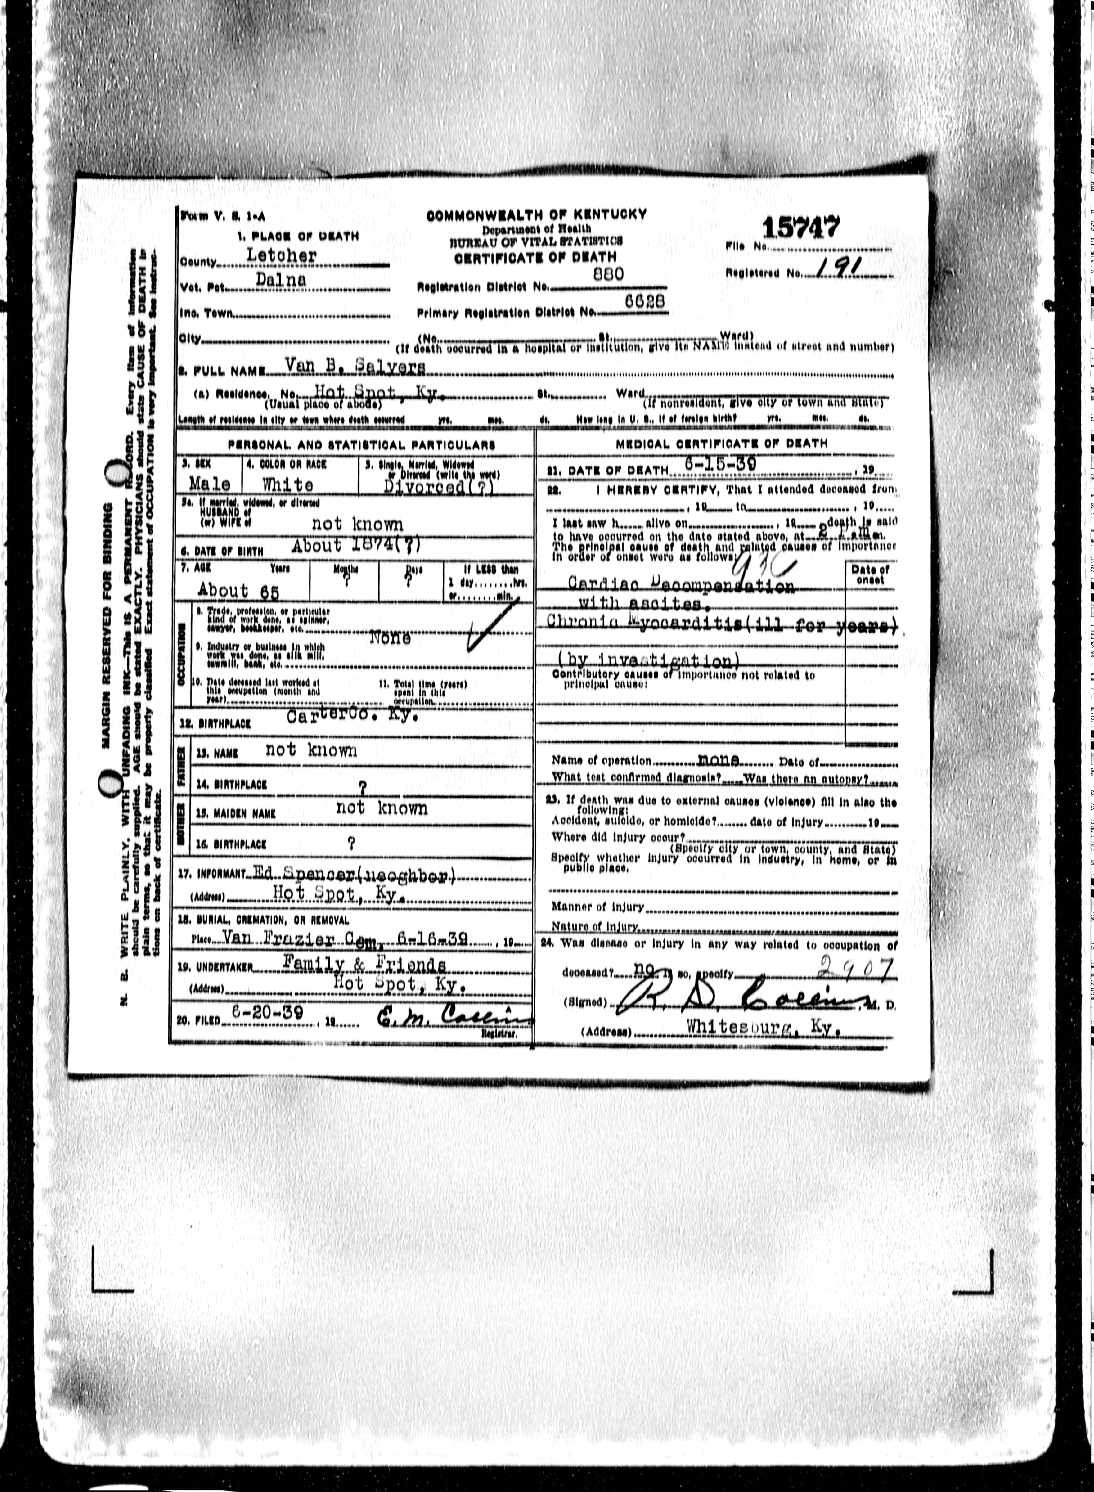 Form V. S. 1-A
COMMONWEALTH OF KENTUCKY
Department of Health
BUREAU OF VITAL STATISTICS
CERTIFICATE OF DEATH
15747
File No.
Registered No. 191
1. PLACE OF DEATH
County Letcher
Vot. Pct. Dalna
Inc. Town
City
Registration District No. 880
Primary Registration District No. 6628
(No. St. Ward)
(If death occurred in a hospital or institution, give its NAME instead of street and number)
2. FULL NAME Van B. Salyers
(a) Residence, No. Hot Spot, Ky. St. Ward
(Usual place of abode) (If nonresident, give city or town and State)
Length of residence in city or town where death occurred yrs. mos. ds. How long in U. S., if of foreign birth? yrs. mos. ds.
PERSONAL AND STATISTICAL PARTICULARS
3. SEX
Male
4. COLOR OR RACE
White
5. Single, Married, Widowed
or Divorced (write the word)
Divorced(?)
5a. If married, widowed, or divorced
HUSBAND of
(or) WIFE of not known
6. DATE OF BIRTH About 1874(?)
7. AGE Years Months Days If LESS than
1 day, hrs.
or min.
About 65 ? ?
OCCUPATION
8. Trade, profession, or particular
kind of work done, as spinner,
sawyer, bookkeeper, etc. None
9. Industry or business in which
work was done, as silk mill,
sawmill, bank, etc.
10. Date deceased last worked at
this occupation (month and
year)
11. Total time (years)
spent in this
occupation
12. BIRTHPLACE CarterCo. Ky.
FATHER
13. NAME not known
14. BIRTHPLACE ?
MOTHER
15. MAIDEN NAME not known
16. BIRTHPLACE ?
17. INFORMANT Ed Spencer(neoghbor)
(Address) Hot Spot, Ky.
18. BURIAL, CREMATION, OR REMOVAL
Place Van Frazier Cem, 6-16-39, 19
19. UNDERTAKER Family & Friends
(Address) Hot Spot, Ky.
20. FILED 6-20-39, 19 E. M. Collins
Registrar.
MEDICAL CERTIFICATE OF DEATH
21. DATE OF DEATH 6-15-39, 19
22. I HEREBY CERTIFY, That I attended deceased from
, 19 to , 19
I last saw h alive on , 19 death is said
to have occurred on the date stated above, at m.
The principal cause of death and related causes of importance
in order of onset were as follows:
93C
Date of
onset
Cardiac Decompensation
with ascites.
Chronic Myocarditis(ill for years)
(by investigation)
Contributory causes of importance not related to
principal cause:
Name of operation none Date of
What test confirmed diagnosis? Was there an autopsy?
23. If death was due to external causes (violence) fill in also the
following:
Accident, suicide, or homicide? date of injury 19
Where did injury occur?
(Specify city or town, county, and State)
Specify whether injury occurred in industry, in home, or in
public place.
Manner of injury
Nature of injury
24. Was disease or injury in any way related to occupation of
deceased? no If so, specify 2907
(Signed) R. D. Collins, M. D.
(Address) Whitesburg, Ky.
MARGIN RESERVED FOR BINDING
N. B. WRITE PLAINLY, WITH UNFADING INK—THIS IS A PERMANENT RECORD. Every item of information
should be carefully supplied. AGE should be stated EXACTLY. PHYSICIANS should state CAUSE OF DEATH in
plain terms, so that it may be properly classified. Exact statement of OCCUPATION is very important. See instruc-
tions on back of certificate.